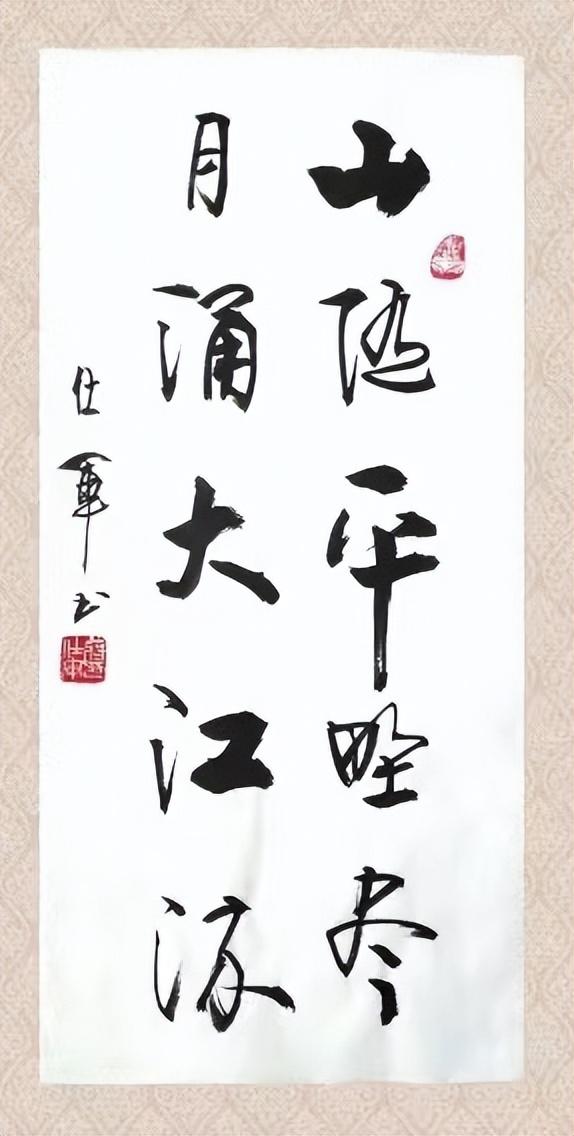 山随平野尽
月涌大江流
仕军书